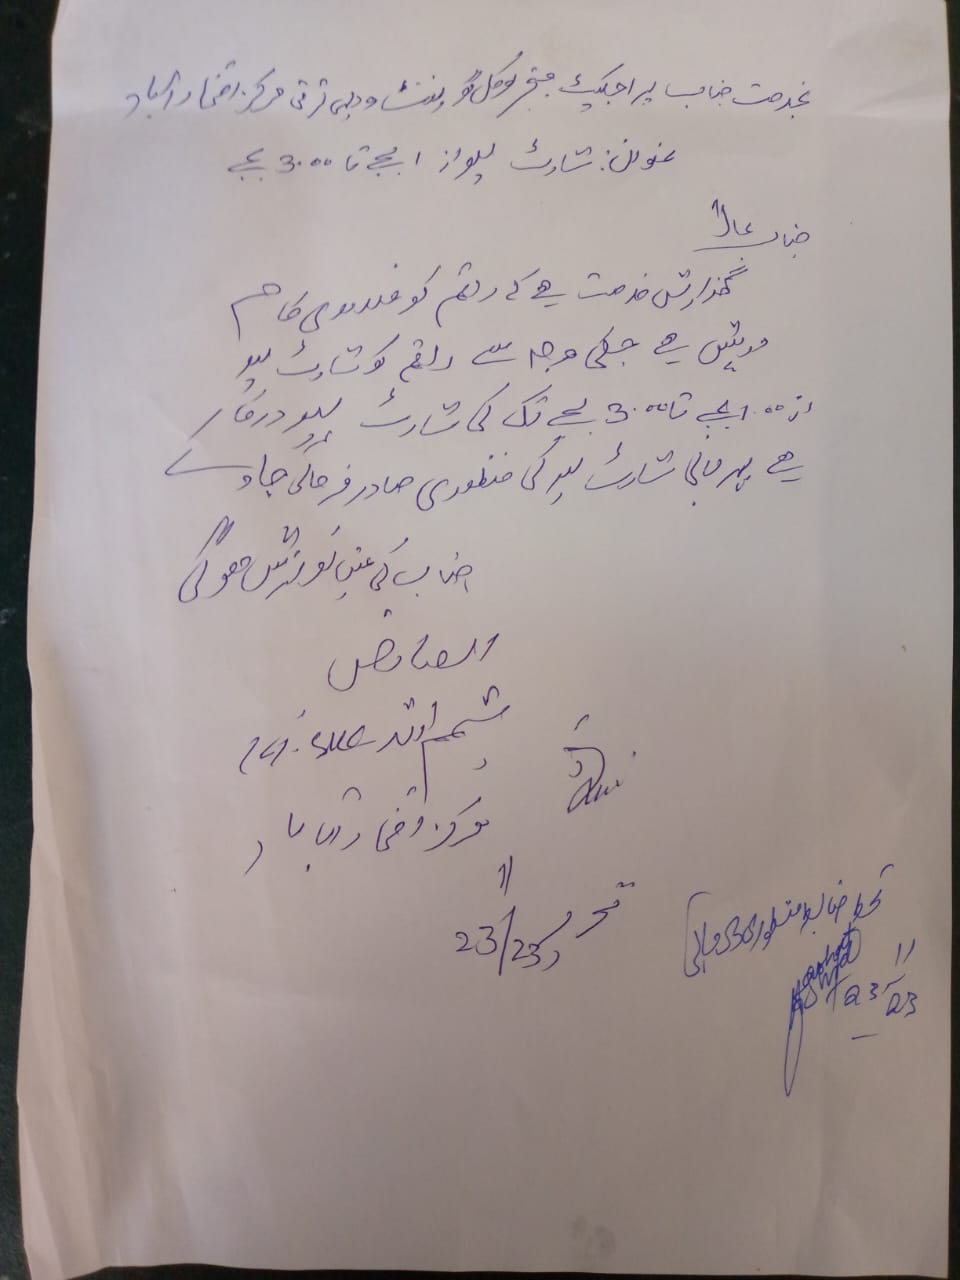 بخدمت جناب پراجیکٹ منیجر لوکل گورنمنٹ و دیہی ترقی مرکز افتخار آباد
عنوان: شارٹ لیو از 1 بجے تا 3.00 بجے
جناب عالی
گذارش خدمت ہے کہ راقم کو ضروری کام
درپیش ہے جسکی وجہ سے راقم کو شارٹ لیو
از 1.00 بجے تا 3.00 بجے تک کی شارٹ لیو درکار
ہے مہربانی شارٹ لیو کی منظوری صادر فرمائی جاوے
جناب کی عین نوازش ہوگی
العارض
شمیم اختر
مرکز افتخار آباد
تحریر 23/11/23
منظوری دی جاتی
23/11/23